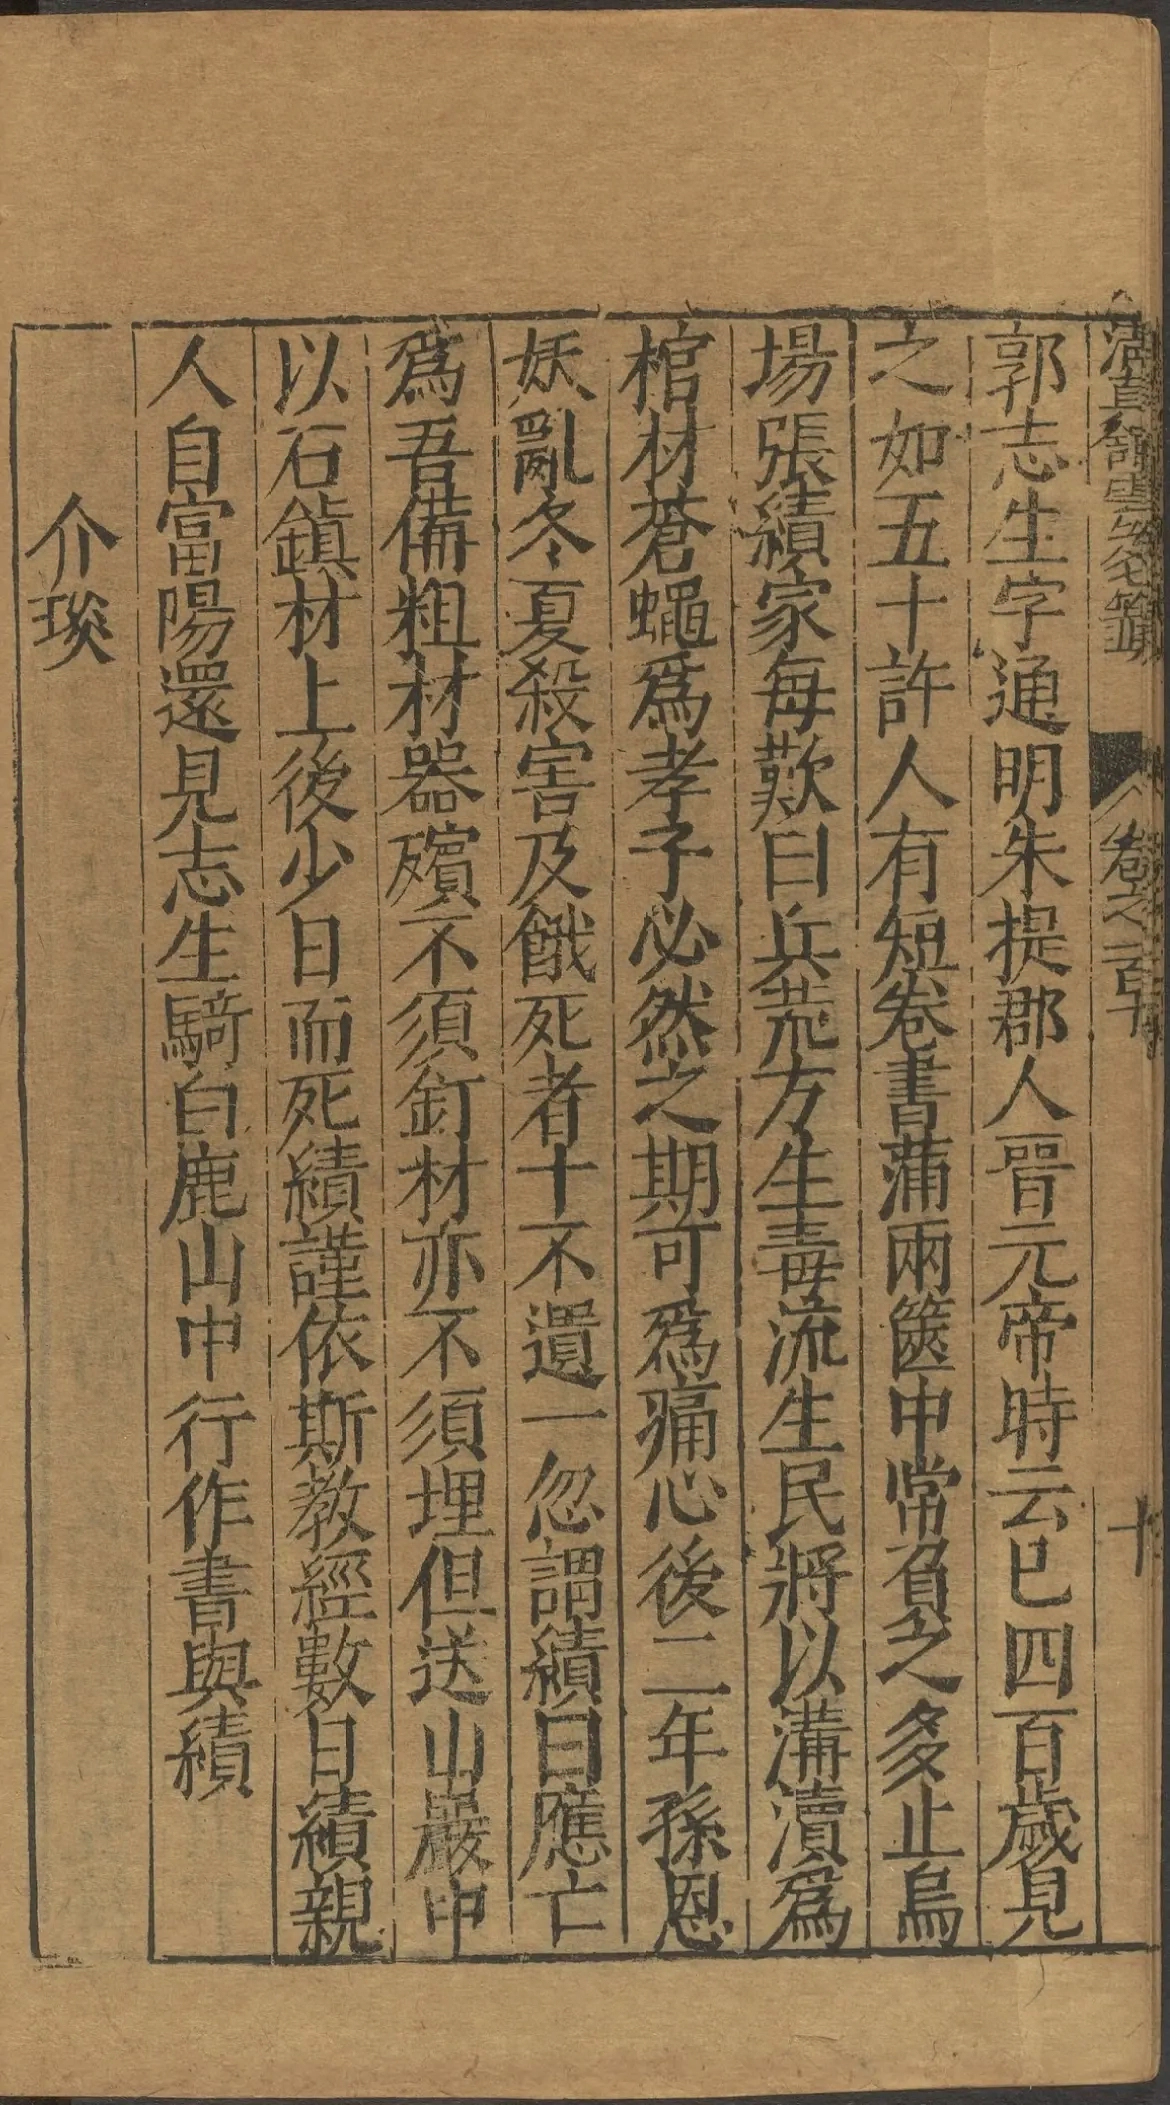 清真館雲笈七籤 卷之一百十 十
郭志生字通明朱提郡人晉元帝時云巳四百歲見
之如五十許人有短卷書蒲兩篋中常負之多止烏
場張績家每歎曰兵荒方生毒流生民將以溝瀆爲
棺材蒼蠅爲孝子必然之期可爲痛心後二年孫恩
妖亂冬夏殺害及餓死者十不遺一忽謂績曰應亡
爲吾備粗材器殯不須釘材亦不須埋但送山巖中
以石鎮材上後少日而死績謹依斯教經數日績親
人自富陽還見志生騎白鹿山中行作書與績
介琰